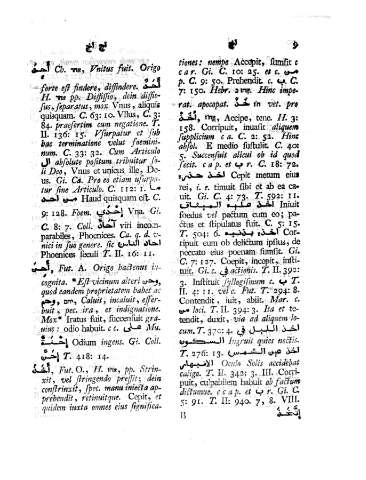 9
Cb. Vnitus fuit. Origo
forte est findere, diffindere.
H. pp. Dissisio, dein diffi-
sus, separatus, mox Vnus, aliquis
quisquam. C. 63: 10. Vllus, C. 3:
84. praesertim cum negatione. T.
II. 136: 15. Vsurpatur et sub
hac terminatione volut foemini-
num. C. 33: 32. Cum Articulo
ال absolute positum tribuitur so-
li Deo, Vnus et unicus, ille, De-
us. Gi. Ca. Pro eo etiam usurpa-
tur sine Articulo. C. 112: 1.
Haud quisquam est. C.
9: 128. Foem. إحدى Vna. Gi.
C. 8: 7. Coll. آحاد viri incom-
parabiles, Phoenices. Ca. q. d. v-
nici in suo genere. sic آحاد الناس
Phoenices seculi T. II. 16: 11.
Fut. A. Origo hactenus in-
cognita. "Est vicinum alteri
quod tandem proprietatem habet ac
Caluit, incaluit, effer-
buit, pec. ira, et indignatione.
Mox" Iratus fuit, succensuit gra-
uius: odio habuit. c c. على Mu.
إحنة Odium ingens. Gi. Coll.
إحن T. 418: 14.
أخذ Fut. O., H. pp. Strin-
xit, vel stringendo pressit; dein
constrinxit, spec. manu iniecta ap-
prehendit, retinuitque. Cepit, et
quidem iuxta omnes eius significa-
tiones: nempe Accepit, sumsit c
c a r. Gi. C. 10: 25. et c. من
p. C. 9: 50. Prehendit. c. ب C.
7: 150. Hebr. Hinc impe-
rat. apocopat. خذ in vet. pro
Accipe, tene. H. 3:
158. Corripuit, inuasit aliquem
supplicium c a. C. 2: 52. Hinc
absol. E medio sustulit. C. 40:
5. Succensuit alicui ob id quod
fecit. c a p. et ب r. C. 18: 72.
أخذ حذره Cepit metum eius
rei, i. r. timuit sibi et ab ea ca-
uit. Gi. C. 4: 73. T. 592: 11.
أخذ عليه الميثاق Iniuit
foedus vel pactum cum eo; pac-
tus et stipulatus fuit. C. 5: 15.
T. 504: 6. أخذه بذنبه Cor-
ripuit eum ob delictum ipsius, de
peccato eius poenam sumsit. Gi.
C. 7: 127. Coepit, incepit, insti-
tuit. Gi. c. في actionis. T. II. 392:
3. Instituit syllogismum c. ب T.
II. 4: 11. vel c. Fut. T. 294: 8.
Contendit, iuit, abiit. Mar. c.
من loci. T. II. 394: 3. Ita et te-
tendit, duxit, via ad aliquem lo-
cum. T. 370: 4. أخذ الليل في
السكون Ingruit quies noctis.
T. 276: 13. أخذ من الشمس
الابهار Oculo Solis accidebat
caligo. T. II. 342: 3. III. Corri-
puit, culpabilem habuit ob factum
dictumue. c c a p. et ب r. Gi. C.
5: 91. T. II: 940. 7, 8. VIII.
B